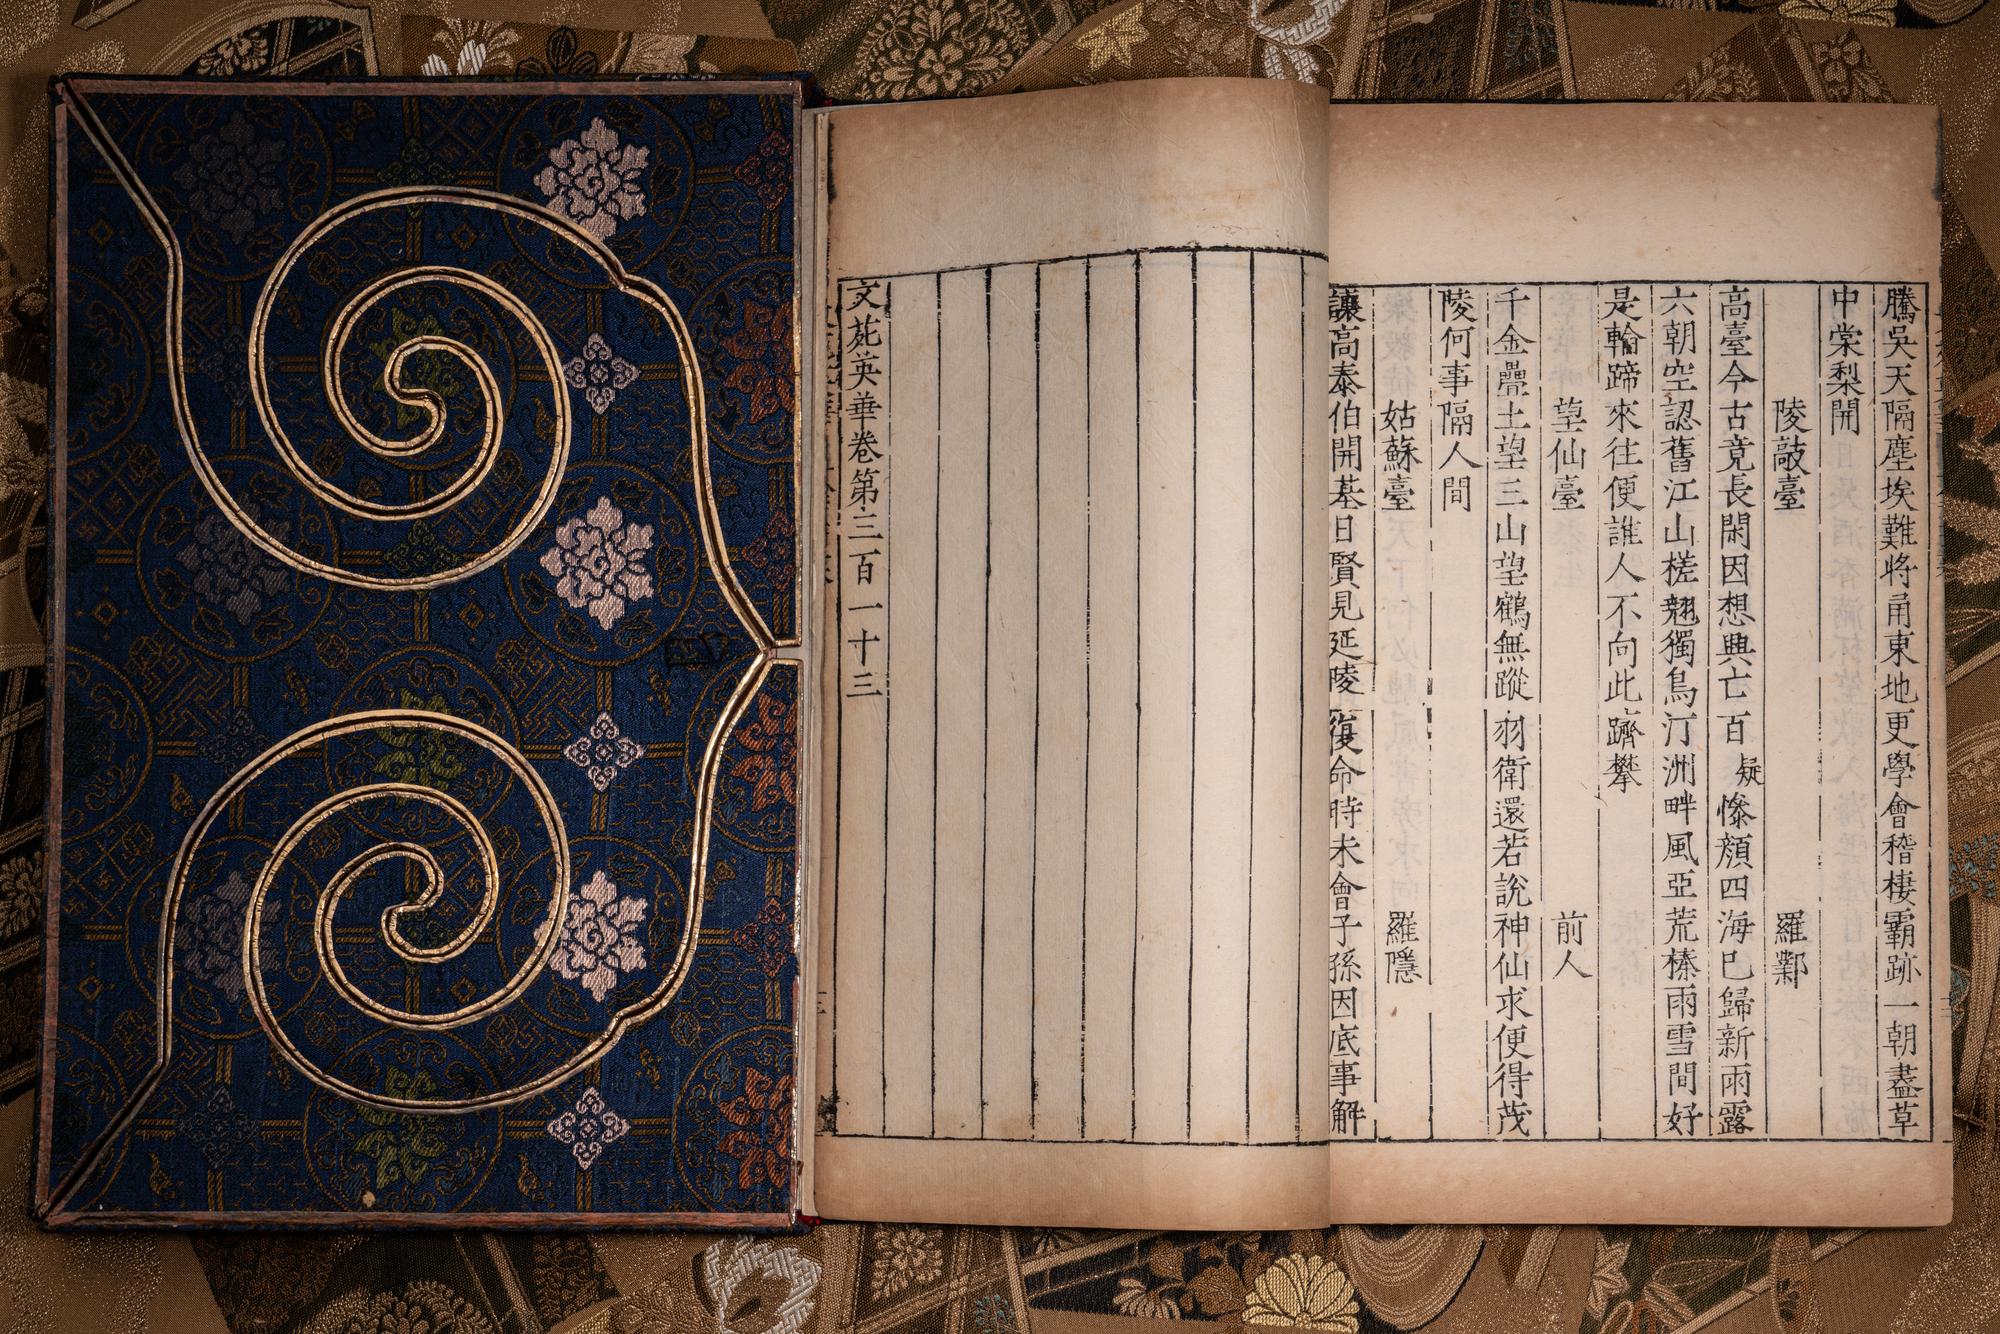 騰吳天隔塵埃難將甬東地更學會稽棲霸跡一朝盡草
中棠梨開
陵敲臺 羅鄴
高臺今古竟長閑因想興亡百疑慘顏四海已歸新雨露
六朝空認舊江山槎翹獨鳥汀洲畔風亞荒榛雨雪間好
是輪蹄來往便誰人不向此躋攀
望仙臺 前人
千金疊土望三山望鶴無蹤羽衛還若說神仙求便得茂
陵何事隔人間
姑蘇臺 羅隱
讓高泰伯開基日賢見延陵復命時未會子孫因底事解
文苑英華卷第三百一十三